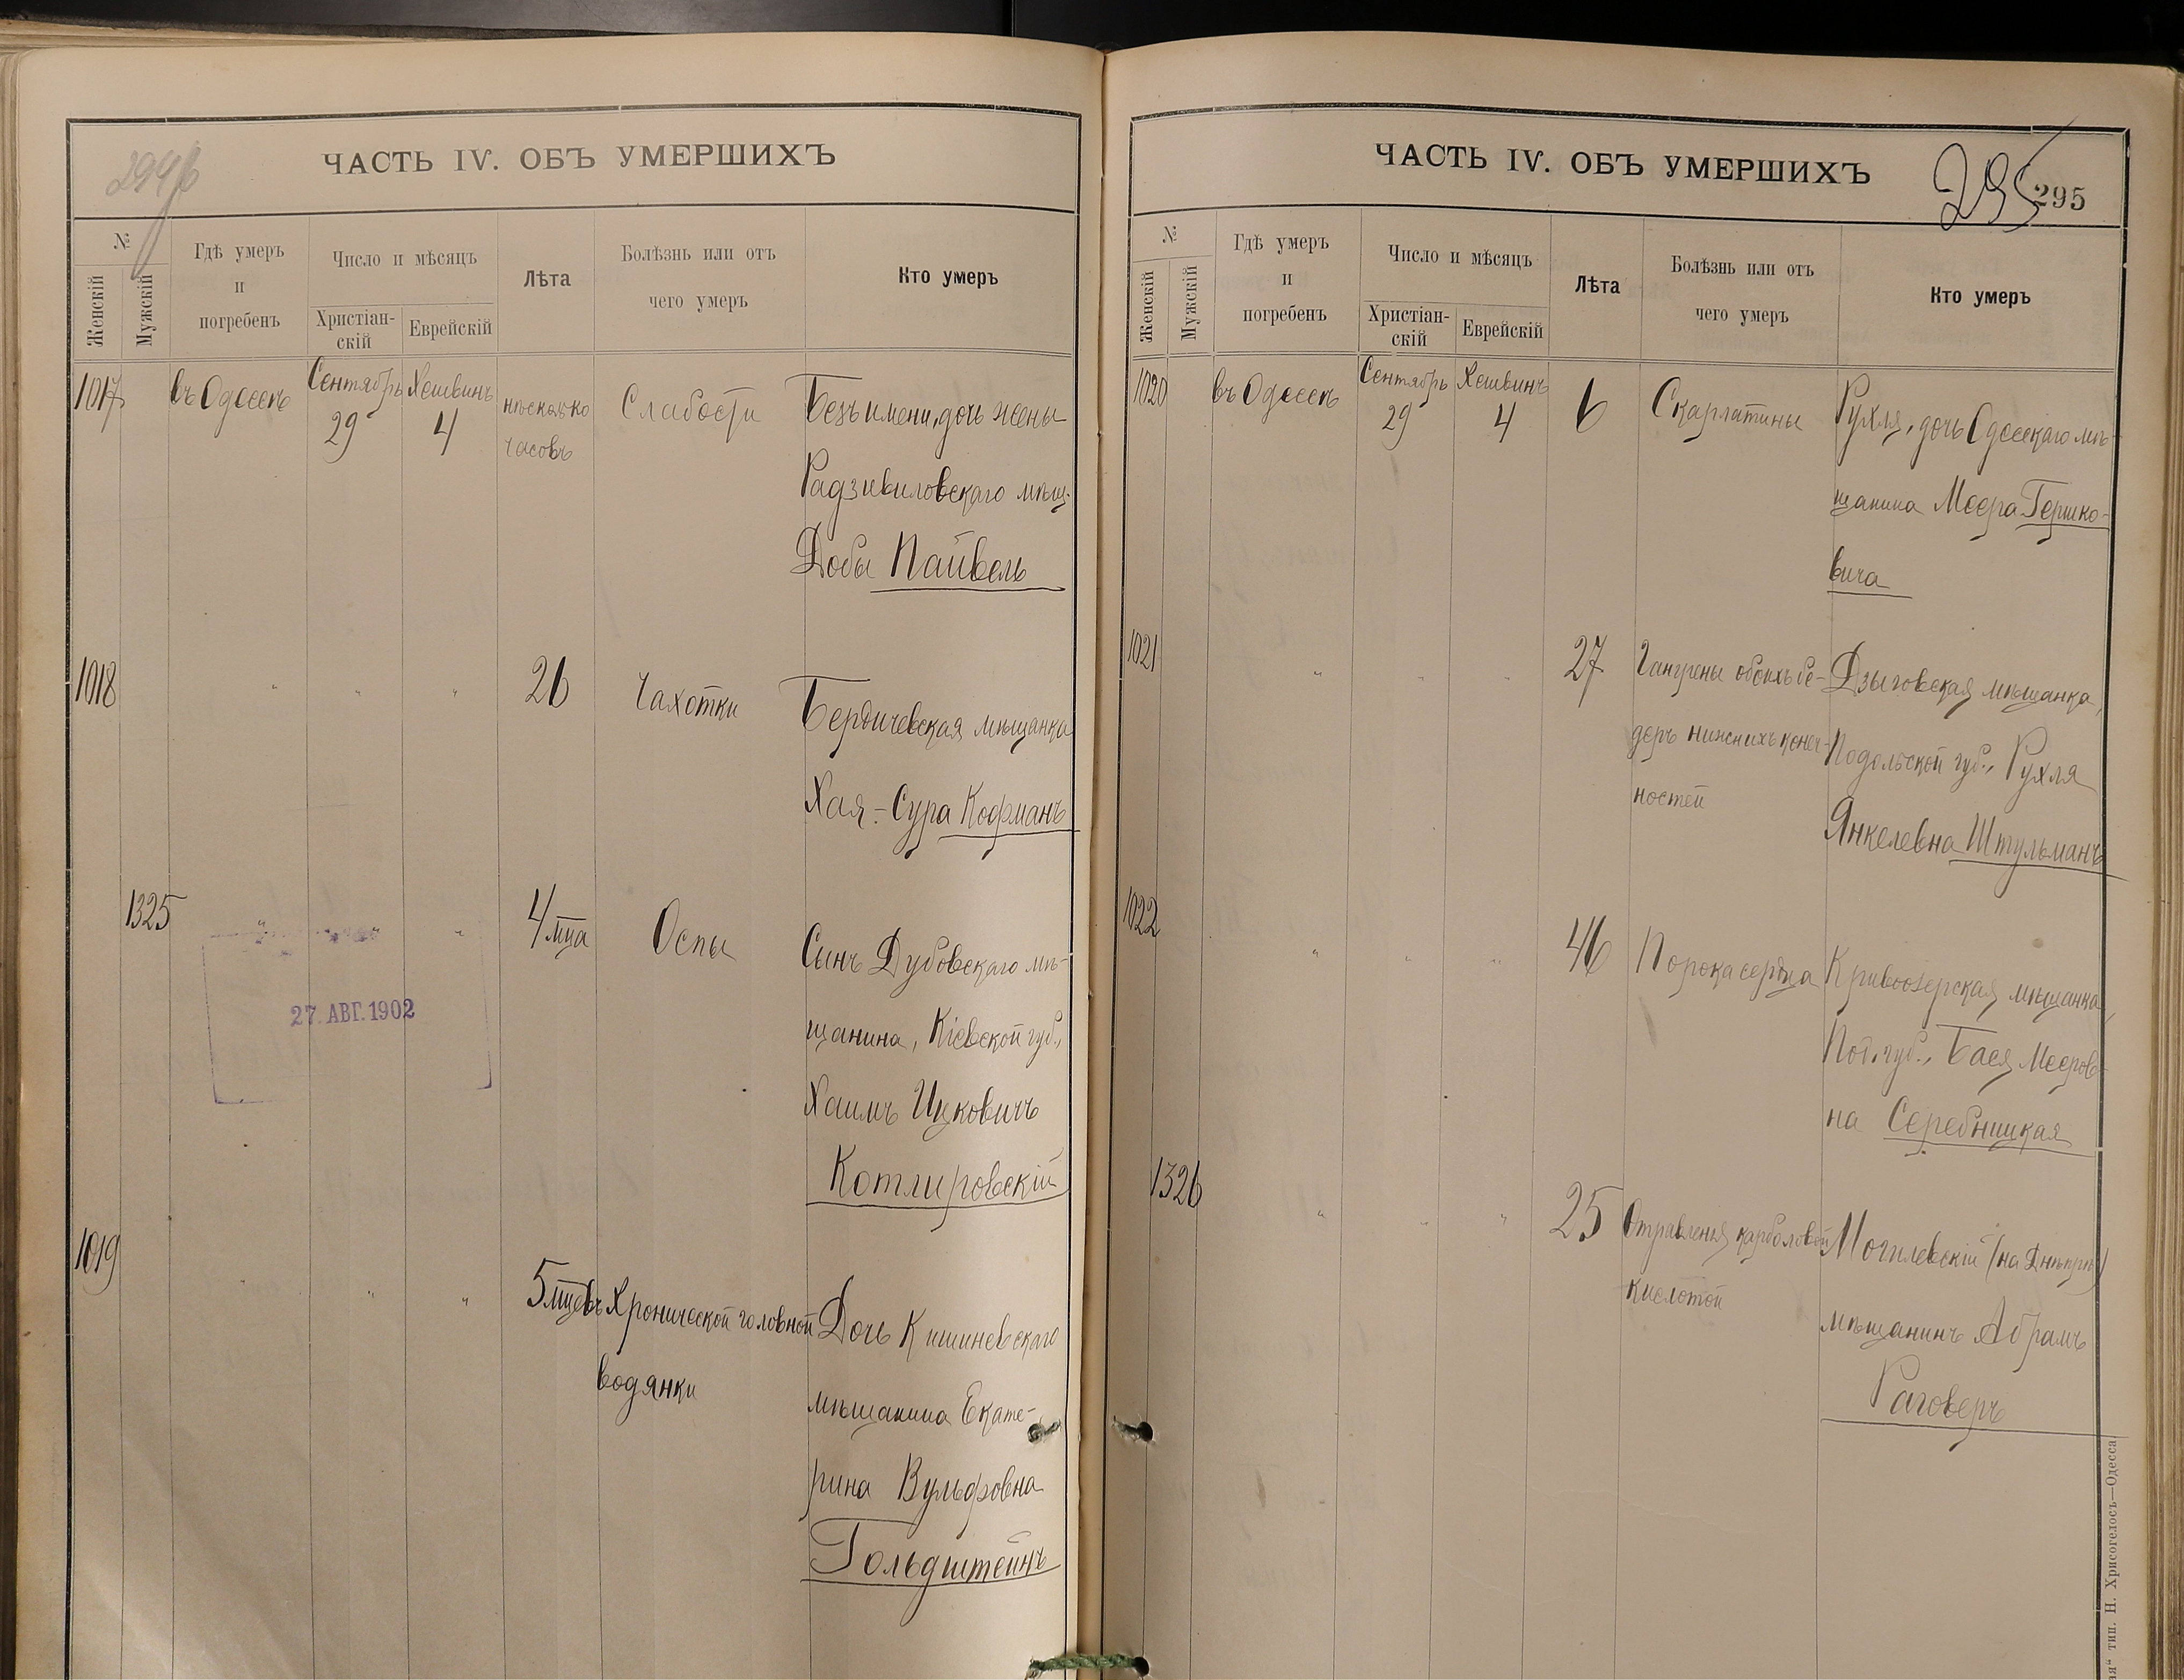 294б
ЧАСТЬ IV. ОБЪ УМЕРШИХЪ
№
Женскій
Мужскій
Гдѣ умеръ
и
погребенъ
Число и мѣсяцъ
Христіан-
скій
Еврейскій
Лѣта
Болѣзнь или отъ
чего умеръ
Кто умеръ
1017 въ Одессѣ Сентябрь 29 Хешвинъ 4 нѣсколько часовъ Слабости Безъ имени, дочь жены
Радзивиловскаго мѣщ.
Добы Пайвель
1018 " " " 26 Чахотки Бердичевская мѣщанка
Хая-Сура Кофманъ
1325 " " " 4 мца Оспы Сынъ Дубовскаго мѣ-
щанина, Кіевской губ.,
Хаимъ Ицковичъ
Котлировскій
27. АВГ. 1902
1019 " " " 5 мцевъ Хронической головной
водянки
Дочь Кишиневскаго
мѣщанина Екате-
рина Вульфовна
Гольдштейнъ
ЧАСТЬ IV. ОБЪ УМЕРШИХЪ
295
295
№
Женскій
Мужскій
Гдѣ умеръ
и
погребенъ
Число и мѣсяцъ
Христіан-
скій
Еврейскій
Лѣта
Болѣзнь или отъ
чего умеръ
Кто умеръ
1020 въ Одессѣ Сентябрь 29 Хешвинъ 4 6 Скарлатины Рухля, дочь Одесскаго мѣ-
щанина Меера Гершко-
вича
1021 " " " 27 Гангрены обоихъ бе-
деръ нижнихъ конеч-
ностей
Дзыговская мѣщанка,
Подольской губ., Рухля
Янкелевна Штульманъ
1022 " " " 46 Порока сердца Кривоозерская мѣщанка,
Под. губ., Бася Мееров-
на Серебницкая
1326 " " " 25 Отравленія карболовой
кислотой
Могилевскій (на Днѣпрѣ)
мѣщанинъ Абрамъ
Раговеръ
тип. Н. Хрисогелосъ—Одесса